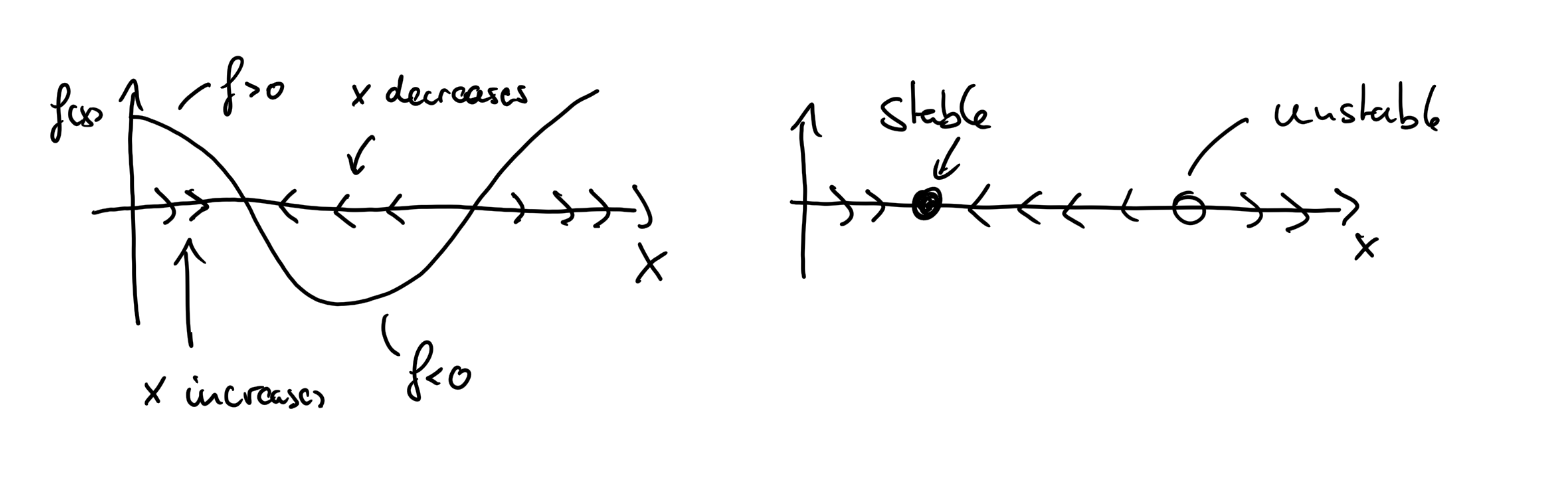 f(x)
f>0
x decreases
x increases
f<0
x
stable
unstable
x